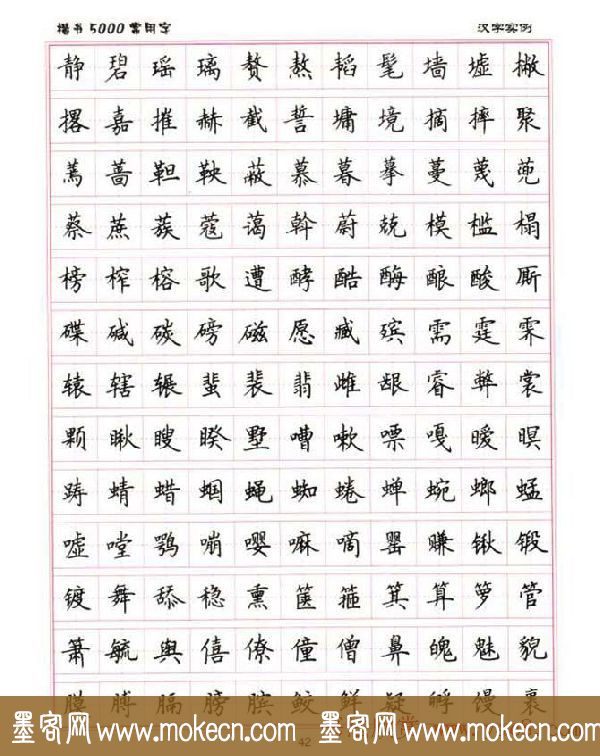 楷书5000常用字 汉字实例
静碧瑶璃赘熬韬髦墙墟撇
撂嘉摧赫截誓墉境摘摔聚
蔫蔷靼鞅蔽慕暮摹蔓蔑蔸
蔡蔗蔟蔻蔼斡蔚兢模槛榻
榜榨榕歌遭酵酷酶酿酸厮
碟碱碳磅磁愿臧殡需霆霁
辕辖辗蜚裴翡雌龈睿弊裳
颗瞅瞍睽墅嘈嗽嘌嘎暧暝
踌蜻蜡蝈蝇蜘蜷蝉蜿螂蜢
嘘嘡鹗嘣嘤嘛嘀罂赚锹锻
镀舞舔稳熏箧箍箕算箩管
箫毓舆僖僚僮僧鼻魄魅貌
膜膊膈膀膑鲛鲜疑孵馒裹
墨客网 www.mokecn.com 墨客网 www.mokecn.com
42